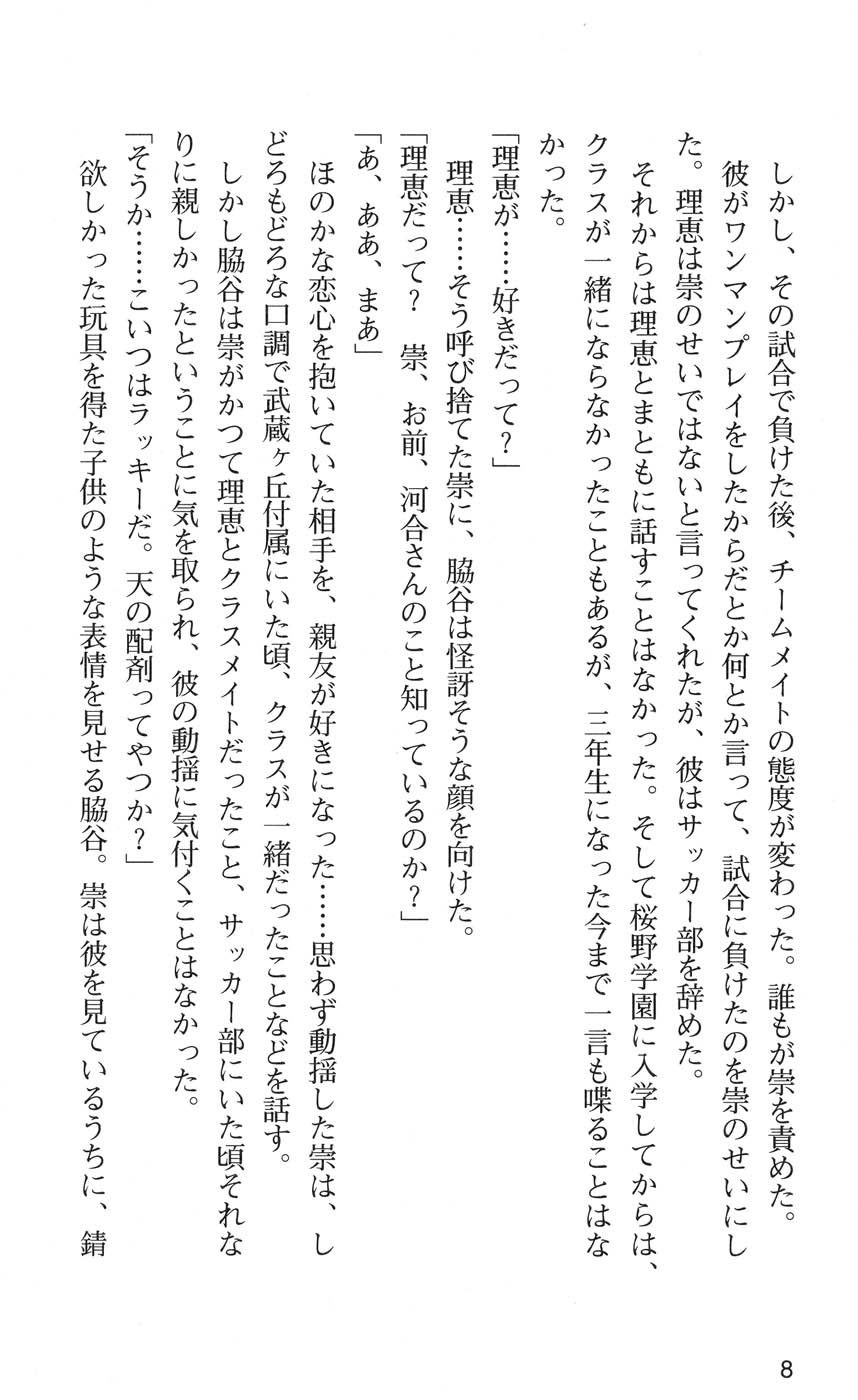 しかし、その試合で負けた後、チームメイトの態度が変わった。誰もが崇を責めた。
　彼がワンマンプレイをしたからだとか何とか言って、試合に負けたのを崇のせいにし
た。理恵は崇のせいではないと言ってくれたが、彼はサッカー部を辞めた。
　それからは理恵とまともに話すことはなかった。そして桜野学園に入学してからは、
クラスが一緒にならなかったこともあるが、三年生になった今まで一言も喋ることはな
かった。
「理恵が……好きだって？」
　理恵……そう呼び捨てた崇に、脇谷は怪訝そうな顔を向けた。
「理恵だって？　崇、お前、河合さんのこと知っているのか？」
「あ、ああ、まあ」
　ほのかな恋心を抱いていた相手を、親友が好きになった……思わず動揺した崇は、し
どろもどろな口調で武蔵ヶ丘付属にいた頃、クラスが一緒だったことなどを話す。
　しかし脇谷は崇がかつて理恵とクラスメイトだったこと、サッカー部にいた頃それな
りに親しかったということに気を取られ、彼の動揺に気付くことはなかった。
「そうか……こいつはラッキーだ。天の配剤ってやつか？」
　欲しかった玩具を得た子供のような表情を見せる脇谷。崇は彼を見ているうちに、錆
8